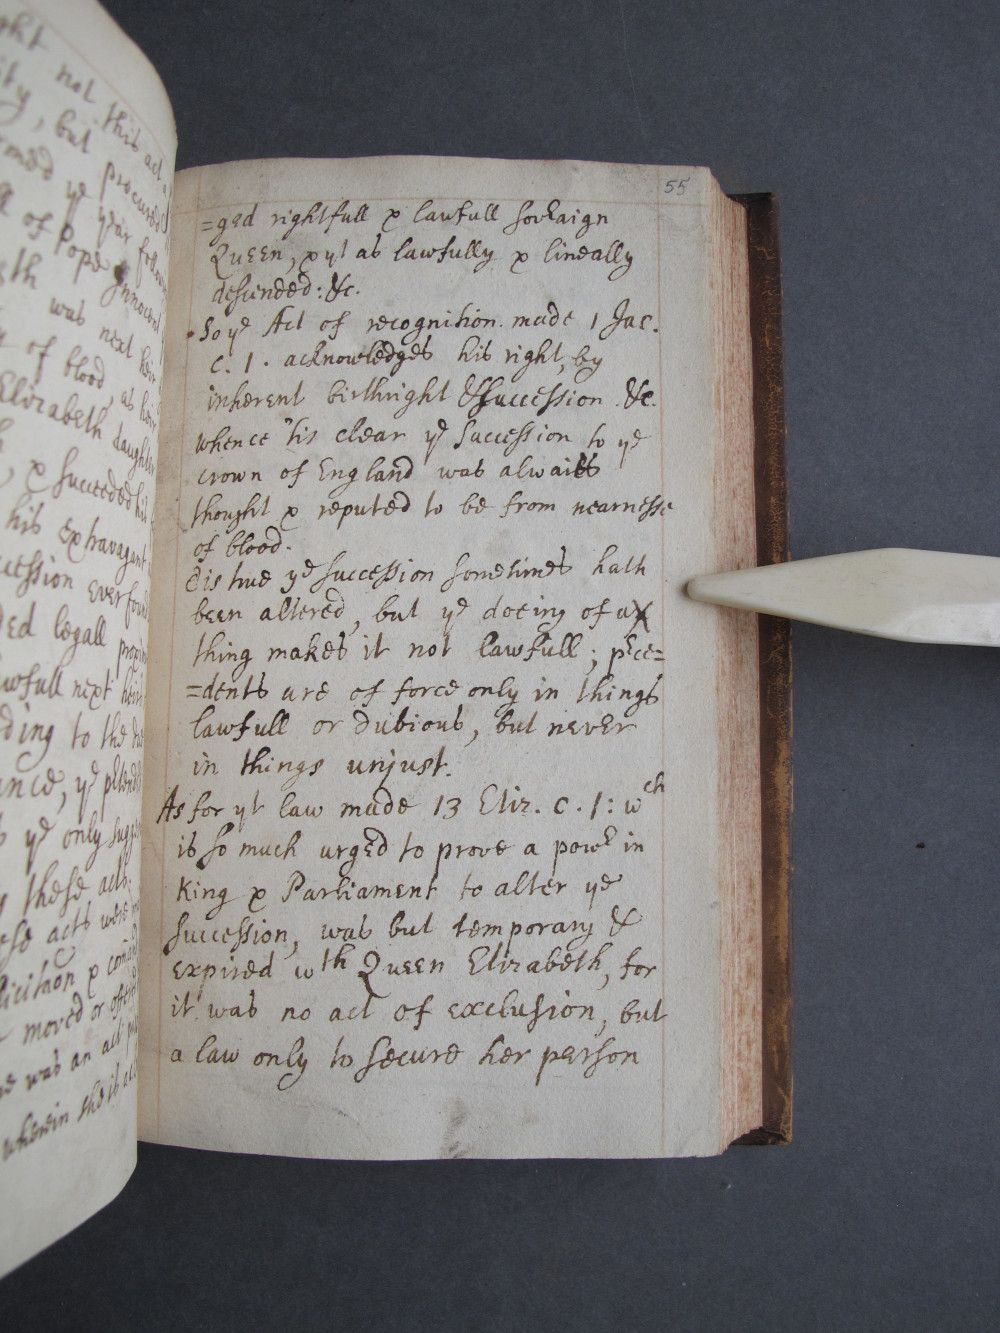 ght not this act
ity, but procured
ye year follow
of Pope Innocent
was next heir
of blood, as heir
Elizabeth daughter
& succeeded his
his extravagant
ccession ever found
legall
awfull next heir
ding to the due
ance, ye ptended
ye only
these acts.
ese acts were
& comand
moved or offered
was an act
wherein she is
55
=ged rightfull & lawfull sovraign
Queen, & yt as lawfully & lineally
desinded: &c.
So ye Act of recognition made 1 Jac.
c. 1. acknowledges his right, by
inherent birthright & succession &c.
whence 'tis clear ye succession to ye
crown of England was alwaies
thought & reputed to be from nearnesse
of blood.
'Tis true ye succession sometimes hath
been altered, but ye doeing of a
thing makes it not lawfull; prce=
=dents are of force only in things
lawfull or dubious, but never
in things unjust.
As for yt law made 13 Eliz. c. 1: wch
is so much urged to prove a powr in
King & Parliament to alter ye
succession, was but temporary &
expired wth Queen Elizabeth, for
it was no act of exclusion, but
a law only to secure her person